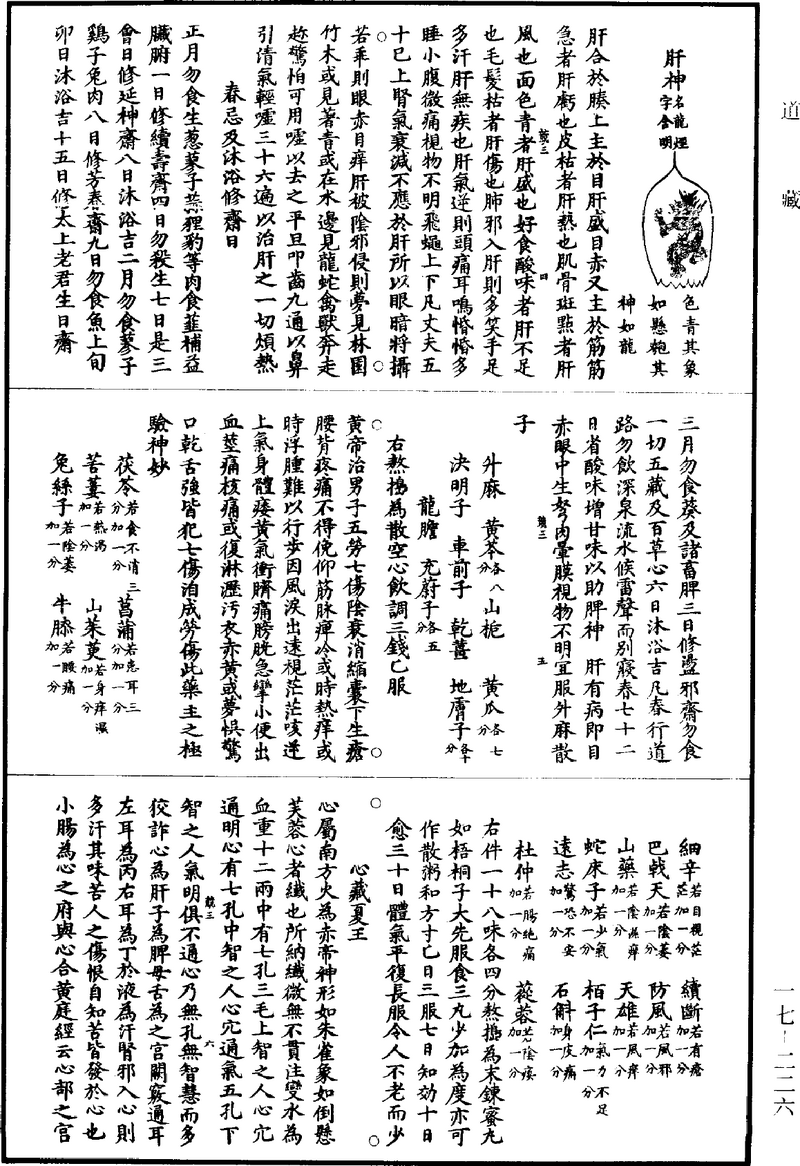 道藏
肝神名龍煙字含明
色青其象
如懸匏其
神如龍
肝合於膝上主於目肝盛目赤又主於筋筋
急者肝虧也皮枯者肝熱也肌骨斑點者肝
風也面色青者肝盛也好食酸味者肝不足
也毛髮枯者肝傷也肺邪入肝則多笑手足
多汗肝無疾也肝氣逆則頭痛耳鳴惛惛多
睡小腹微痛視物不明飛蠅上下凡丈夫五
十巳上腎氣衰減不應於肝所以眼暗將攝
苦乖則眼赤目痒肝被陰邪侵則夢見林園
竹木或見著青或在水邊見龍蛇禽獸奔走
趂驚怕可用噓以去之平旦叩齒九通以鼻
引清氣輕噓三十六遍以治肝之一切煩熱
春忌及沐浴修齋日
正月勿食生葱蓼子梨狸豹等肉食韮補益
臟腑一日修續壽齋四日勿殺生七日是三
會日修延神齋八日沐浴吉二月勿食蓼子
鷄子兔肉八日修芳春齋九日勿食魚上旬
卯日沐浴吉十五日修太上老君生日齋
三月勿食葵及諸畜脾三日修盪邪齋勿食
一切五藏及百草心六日沐浴吉凡春行道
路勿飲深泉流水候雷聲而別寢春七十二
日省酸味增甘味以助脾神 肝有病即目
赤眼中生努肉暈膜視物不明宜服升麻散
子
升麻 黃芩各八分 山梔 黃瓜各七分
決明子 車前子 乾薑 地膚子各十分
龍膽 充蔚子各五
右熬擣為散空心飲調三錢匕服
黃帝治男子五勞七傷陰衰消縮囊下生瘡
腰背疼痛不得俛仰筋脉痺冷或時熱痒或
時浮腫難以行步因風淚出遠視茫茫咳逆
上氣身體痿黃氣衝臍痛膀胱急攣小便出
血莖痛核痛或復淋瀝污衣赤黃或夢悮驚
口乾舌強皆犯七傷洎成勞傷此藥主之極
驗神妙
茯苓若食不消三分加一分 菖蒲若患耳三分加一分
菩薹若熱渴加一分 山茱萸若身痒濕加一分
兔絲子若陰萎加一分 牛膝若腰痛加一分
細辛若目視茫茫加一分 續斷若有瘡加一分
巴戟天若陰萎加一分 防風若風邪加一分
山藥若陰濕痺加一分 天雄若風痒加一分
蛇床子若少氣加一分 栢子仁氣力不足加一分
遠志驚恐不安加一分 石斛身皮痛加一分
杜仲若腸絕痛加一分 蓯蓉若陰痿加一分
右件一十八味各四分熬擣為末鍊蜜丸
如梧桐子大先服食三丸少加為度亦可
作散粥和方寸匕日三服七日知効十日
愈三十日體氣平復長服令人不老而少
心藏夏王
心屬南方火為赤帝神形如朱雀象如倒懸
芙蓉心者纖也所納纖微無不貫注變水為
血重十二兩中有七孔三毛上智之人心穴
通明心有七孔中智之人心穴通氣五孔下
智之人氣明俱不通心乃無孔無智慧而多
狡詐心為肝子為脾母舌為之宮闕竅通耳
左耳為丙右耳為丁於液為汗腎邪入心則
多汗其味苦人之傷恨自知苦皆發於心也
小腸為心之府與心合黃庭經云心部之宮
一七-二二六